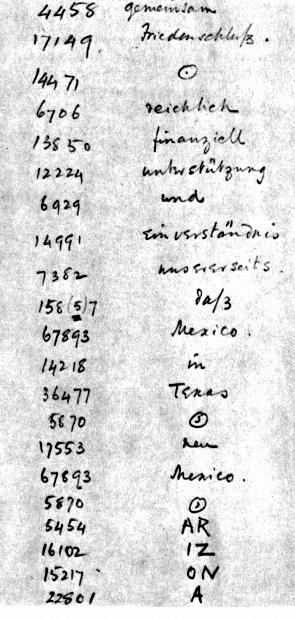 4458 gemeinsam
17149 Friedenschluß.
14471 ⊙
6706 reichlich
13850 finanziell
12224 unterstützung
6929 und
14991 Einverständnis
7382 unsererseits.
158(5)7 daß
67893 Mexico.
14218 in
36477 Texas
5870
17553 neu
67893 Mexico.
5870
5454 AR
16102 IZ
15217 ON
22801 A